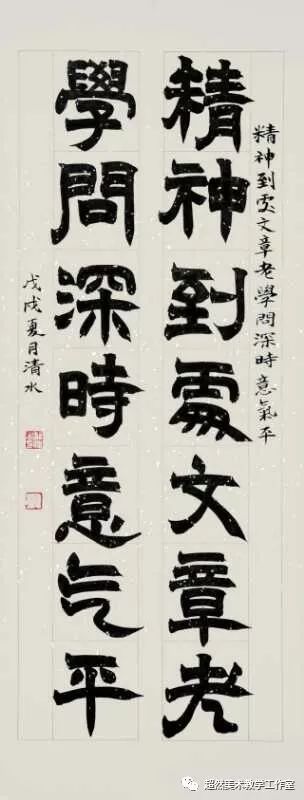 精神到處文章老學問深時意氣平
精神到處文章老
學問深時意气平
戊戌夏月清水
超然美术教学工作室